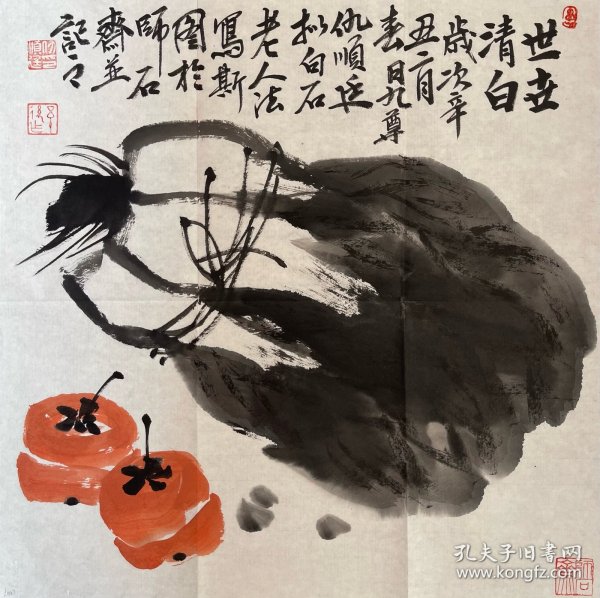 世世
清白
歲次辛
丑二月
春日九尊
仇順延
拟白石
老人法
寫斯
图於
師石
齋並
記之
孔夫子旧书网
www.kongfz.com